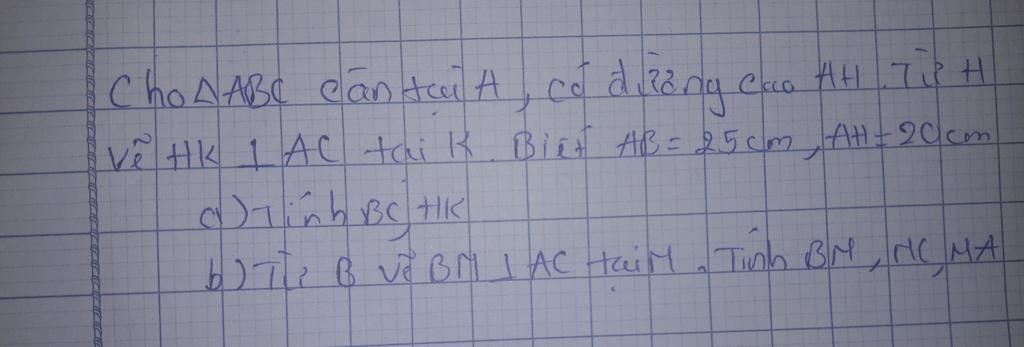 Cho △ABC cân tại A, có đường cao AH. Từ H
vẽ HK ⊥ AC tại K. Biết AB = 25 cm, AH = 20 cm
a) Tính BC, HK
b) Từ B vẽ BM ⊥ AC tại M. Tính BM, MC, MA